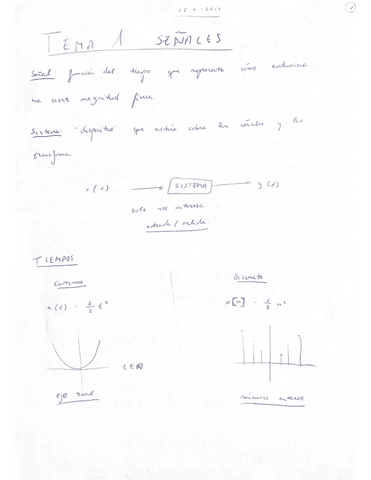 TEMA 1 SEÑALES
Señal: función del tiempo que representa cómo evoluciona
una cierta magnitud física
Sistema: "dispositivo" que actúa sobre las señales y las
transforma
x(t) SISTEMA y(t)
solo nos interesa
entrada/salida
TIEMPOS
Continuo
Discreto
x(t) = 1/2 t²
x[n] = 1/2 n²
t∈ℝ
eje real
números enteros